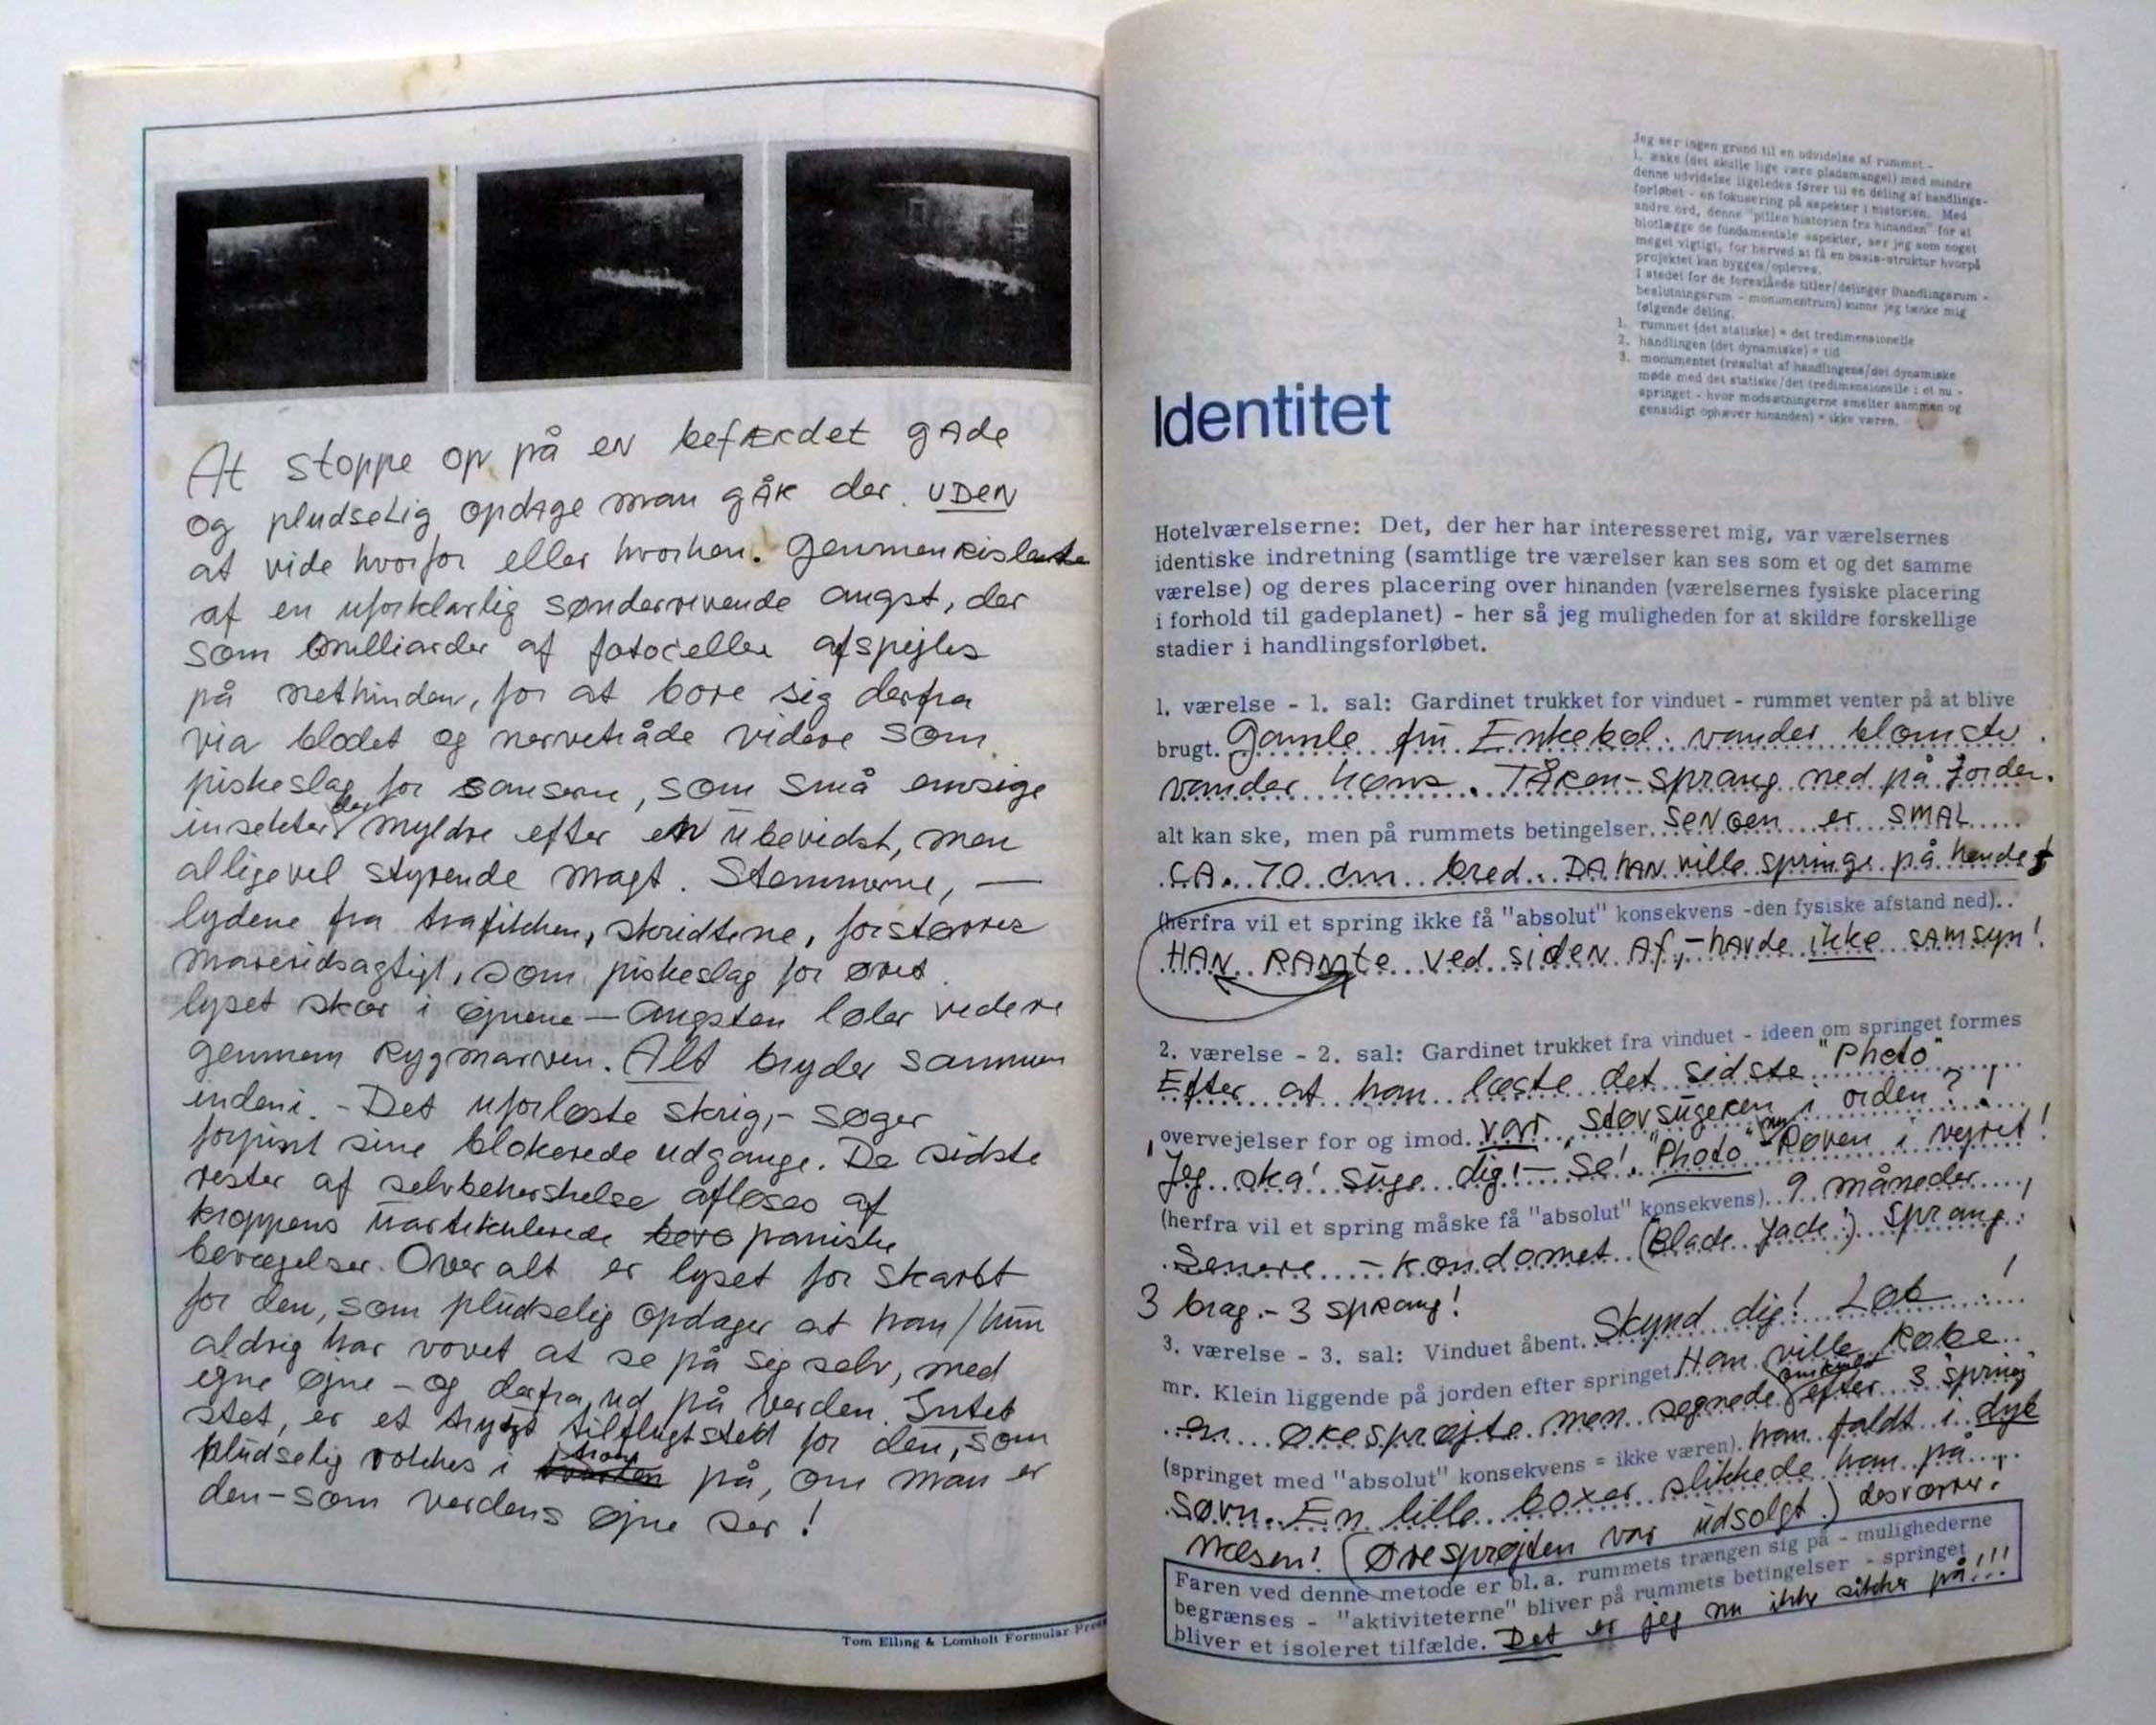 At stoppe op på en befærdet gade
og pludselig opdage man gåR der UDEN
at vide hvorfor eller hvorhen. Gennemrislende
af en uforklarlig sønderrivende angst, der
som milliarder af fotoceller afspejles
på nethinden, for at bore sig derfra
via blodet og nervetråde videre som
piskeslag for sanserne, som små emsige
insekter der myldre efter en ubevidst, men
alligevel styrende magt. Stemmerne, —
lydene fra trafikken, skridtene, forstærres
mareridsagtigt, som piskeslag for øret
lyset skær i øjnene — Angsten løber videre
gennem Rygmarven. Alt bryder sammen
indeni. - Det uforløste skrig, - søger
forpint sine blokerede udgange. De sidste
rester af selvbeherskelse afløses af
kroppens uartikulerede paniske
bevægelser. Overalt er lyset for skarbt
for den, som pludselig opdager at han/hun
aldrig har vovet at se på sig selv, med
egne øjne - og derfra ud på verden. Intet
stet, er et trygt tilflugtsted for den, som
pludselig vækkes i tron på, om man er
den - som verdens øjne ser!
Tom Elling & Lomholt Formular Press
Jeg ser ingen grund til en udvidelse af rummet -
1. æske (det skulle lige være pladsmangel) med mindre
denne udvidelse ligeledes fører til en deling af handlings-
forløbet - en fokusering på aspekter i historien. Med
andre ord, denne "pillen historien fra hinanden" for at
blotlægge de fundamentale aspekter, ser jeg som noget
meget vigtigt, for herved at få en basis-struktur hvorpå
projektet kan bygges/opleves.
I stedet for de foreslåede titler/delinger (handlingsrum -
beslutningsrum - monumentrum) kunne jeg tænke mig
følgende deling.
1. rummet (det statiske) = det tredimensionelle
2. handlingen (det dynamiske) = tid
3. monumentet (resultat af handlingens/det dynamiske
møde med det statiske/det tredimensionelle : et nu -
springet - hvor modsætningerne smelter sammen og
gensidigt ophæver hinanden) = ikke væren.
Identitet
Hotelværelserne: Det, der her har interesseret mig, var værelsernes
identiske indretning (samtlige tre værelser kan ses som et og det samme
værelse) og deres placering over hinanden (værelsernes fysiske placering
i forhold til gadeplanet) - her så jeg muligheden for at skildre forskellige
stadier i handlingsforløbet.
1. værelse - 1. sal: Gardinet trukket for vinduet - rummet venter på at blive
brugt. Gamle fru Enkebal. vander blomster.
vander høns. TåRen-sprang ned på Jorden.
alt kan ske, men på rummets betingelser. SeNGen er SMAL
CA. 70 cm bred. DA hAN ville springe på hende
(herfra vil et spring ikke få "absolut" konsekvens -den fysiske afstand ned)..
HAN RAMte Ved siden Af, - havde ikke SAMsyn!
2. værelse - 2. sal: Gardinet trukket fra vinduet - ideen om springet formes
Efter at han læste det sidste "Photo"
overvejelser for og imod. var støvsugeren i orden?!
"Jeg ska' suge dig! - Se! "Photo" - Røven i vejret!
(herfra vil et spring måske få "absolut" konsekvens).. 9 måneder
Senere - kondomet (Blade Jade!) sprang.
3 brag. - 3 spRang!
3. værelse - 3. sal: Vinduet åbent. Skynd dig! Løb!
mr. Klein liggende på jorden efter springet. Han ville købe
en Øresprøjte men segnede efter 3 "spring"
(springet med "absolut" konsekvens = ikke væren). han faldt i dyb
søvn. En lille boxer slikkede ham på
Næsen! (Øresprøjten var udsolgt) desværre.
Faren ved denne metode er bl.a. rummets trængen sig på - mulighederne
begrænses - "aktiviteterne" bliver på rummets betingelser - springet
bliver et isoleret tilfælde. Det er jeg nu ikke sikker på!!!